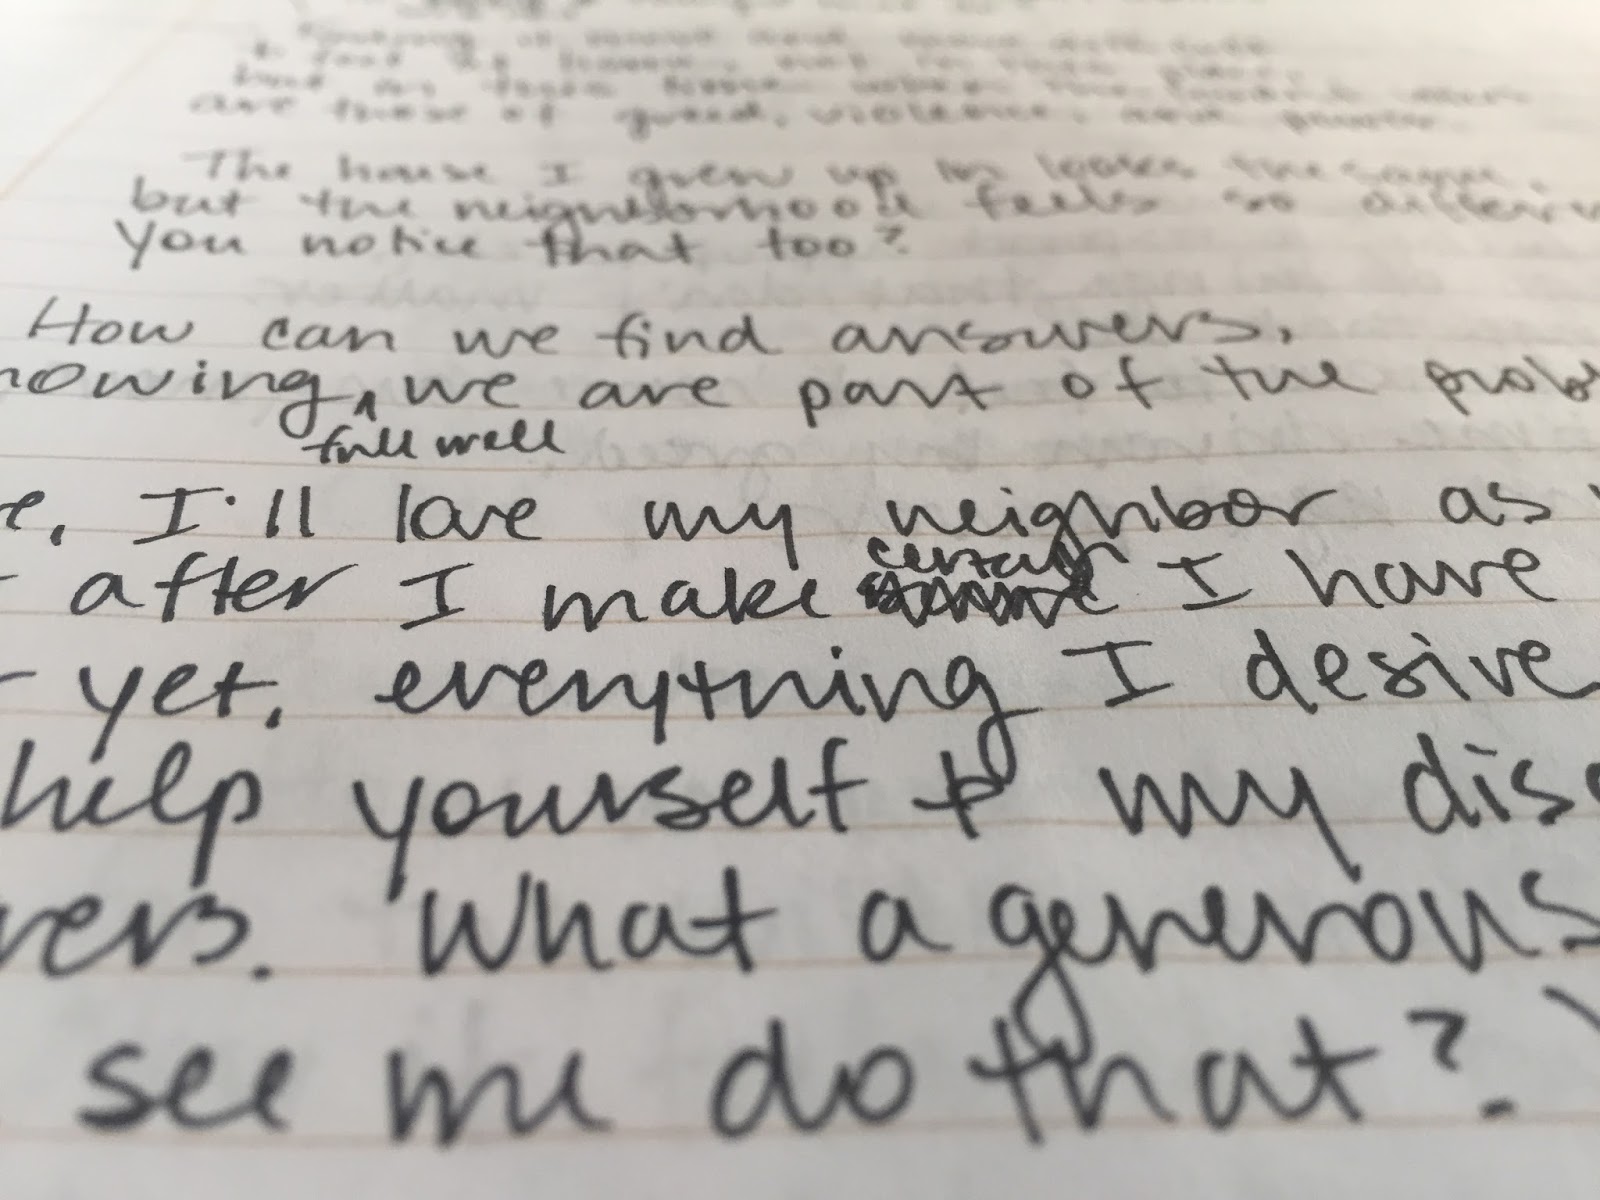 are those of greed, violence, and power.
The house I grew up in looks the same,
but the neighborhood feels so differen
You notice that too?
How can we find answers,
nowing, we are part of the prob
full well
e, I'll love my neighbor as
after I make certain I have
yet, everything I desire
help yourself & my dis
vers. What a generous
see me do that?